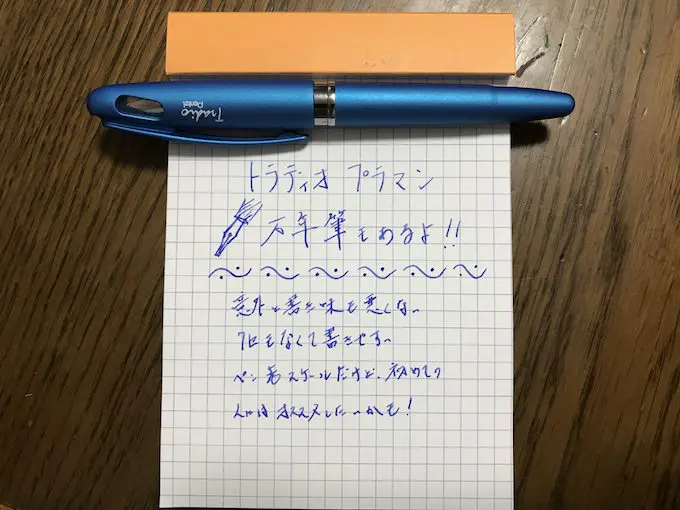 Tradio
Pentel
トラディオ プラマン
万年筆もあるよ!!
意外と書き味も悪くない
クセもなくて書きやすい
ペン先スチールだけど、初めての
人にはオススメしたいかも!